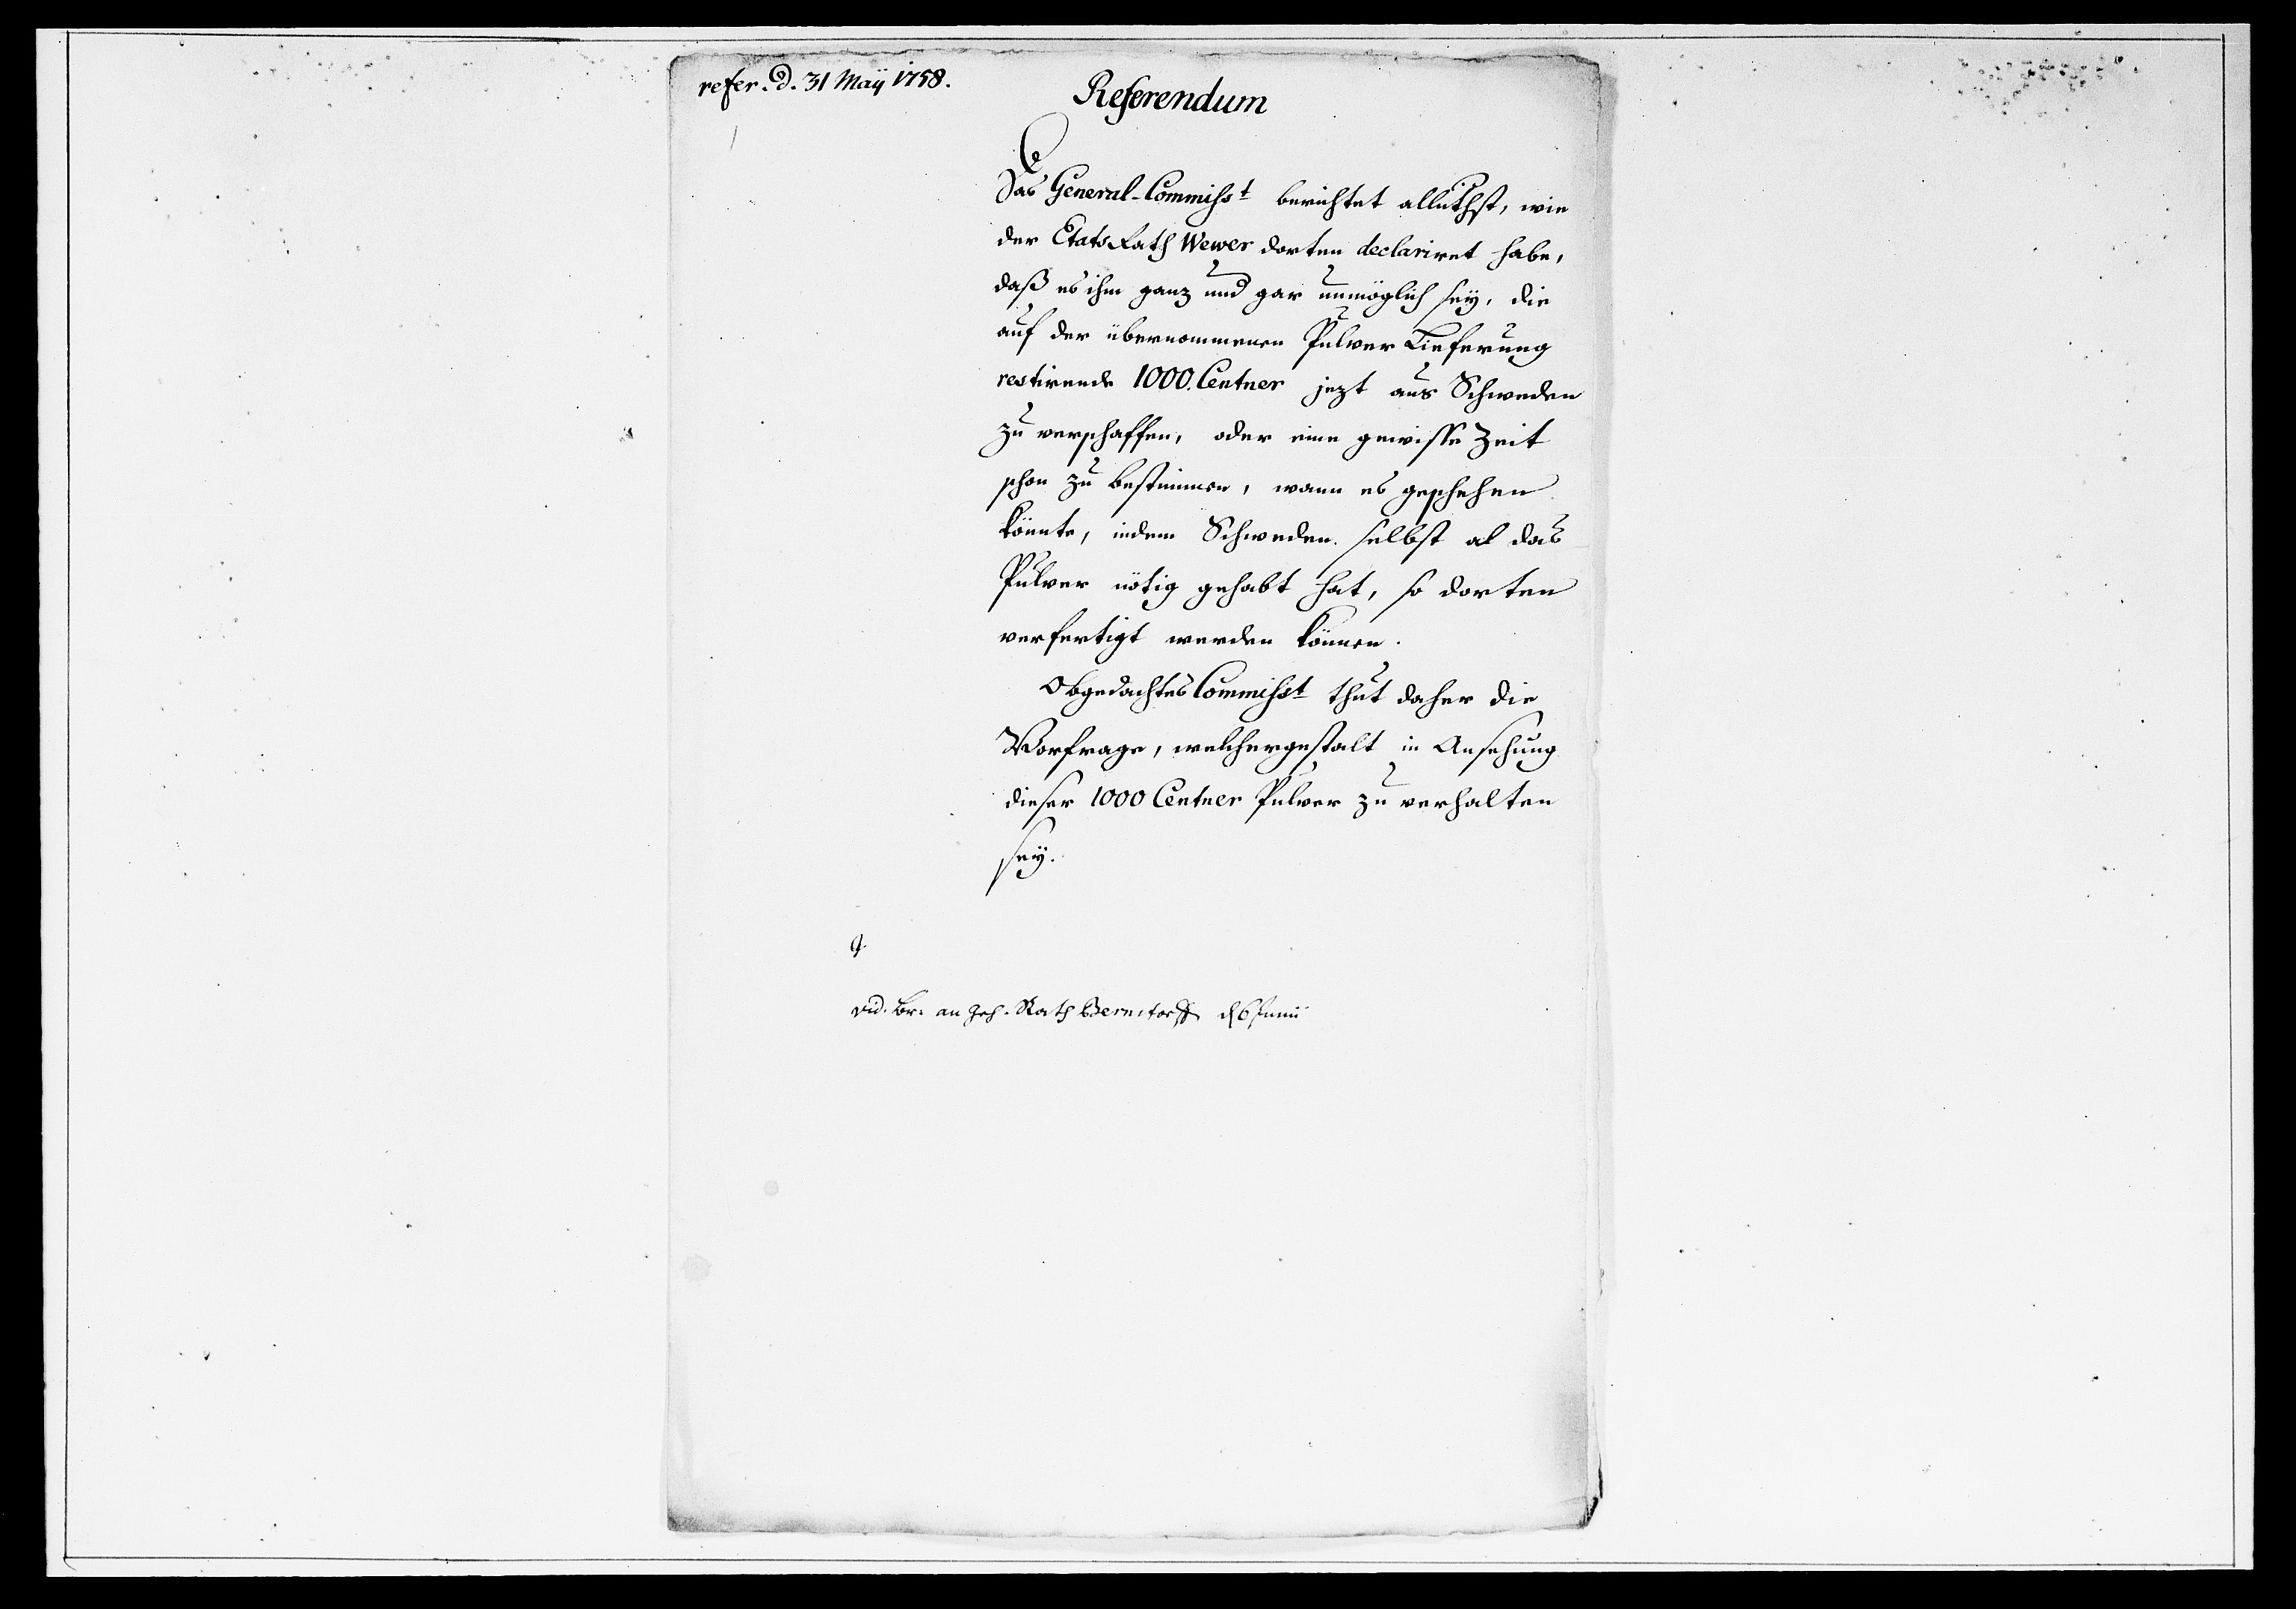 refer. d. 31 Maÿ 1758.
Referendum
Das General-Commißt berichtet allüthst, wie
der Etats Rath Wewer dorten declariret habe,
daß es ihm ganz und gar unmöglich seÿ, die
auf der übernommenen Pulver Lieferung
restirende 1000. Centner jezt aus Schweden
zu verschaffen, oder eine gewisse Zeit
schon zu bestimmen, wann es geschehen
könnte, indem Schweden selbst al das
Pulver nötig gehabt hat, so dorten
verfertigt werden können.
Obgedachtes Commißt thut daher die
Vorfrage, welchergestalt in Ansehung
dieser 1000 Centner Pulver zu verhalten
seÿ.
vid. Br. an Geh. Rath Bernstorff d 6 Junii